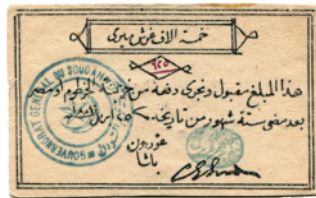 خمسة الاف غرش ميرى
٦٢٥
هذا المبلغ مقبول ويجرى دفعه من خزينة الخرطوم او مصر
بعد مضى ستة شهور من تاريخه ٢٥ ابريل ١٨٨٤
غوردون
باشا
GOUVERNORAT GENERAL DU SOUDAN